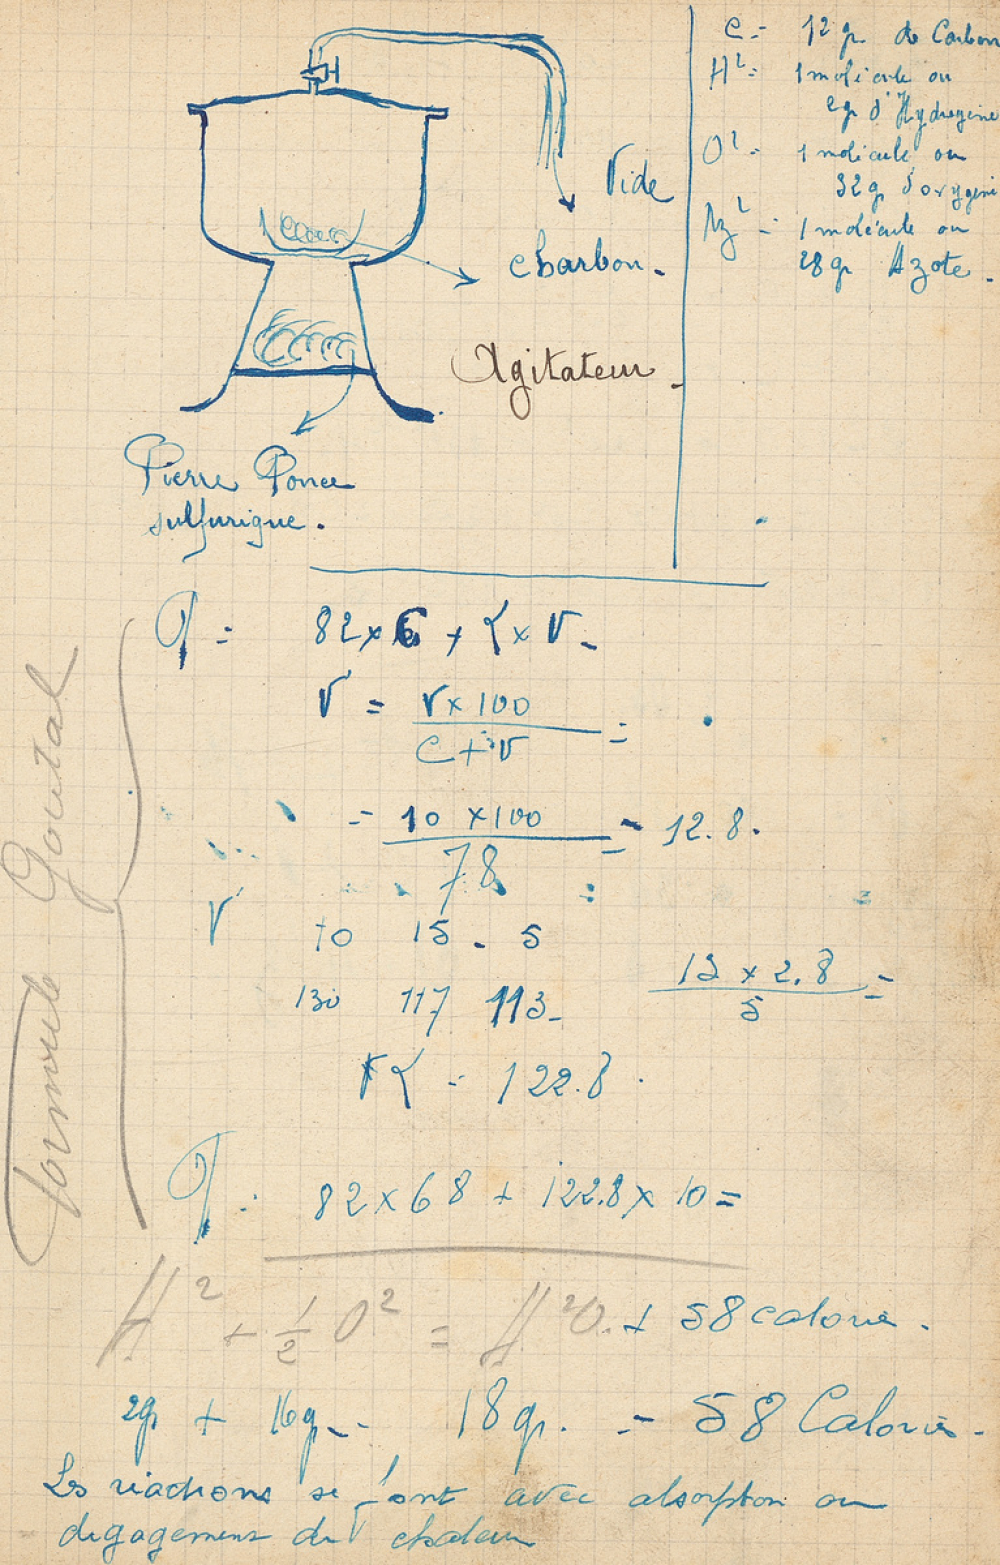 Vide
charbon.
Agitateur.
Pierre Ponce
sulfurique.
C = 12 gr. de Carbon
H² = 1 molécule ou
2gr d'Hydrogène
O² = 1 molécule ou
32 gr d'oxygène
Az² = 1 molécule ou
28 gr Azote.
Formule Goutal
P = 82 x C + α x V.
V' = V x 100 / C + V =
= 10 x 100 / 78 = 12.8.
V 10 15. 5
130 117 113.
13 x 2.8 / 5 =
α = 122.8.
P = 82 x 68 + 122.8 x 10 =
H² + 1/2 O² = H²O. + 58 calorie.
2gr + 16gr. 18 gr. = 58 Calories.
Les réactions se font avec absorption ou
dégagement de chaleur